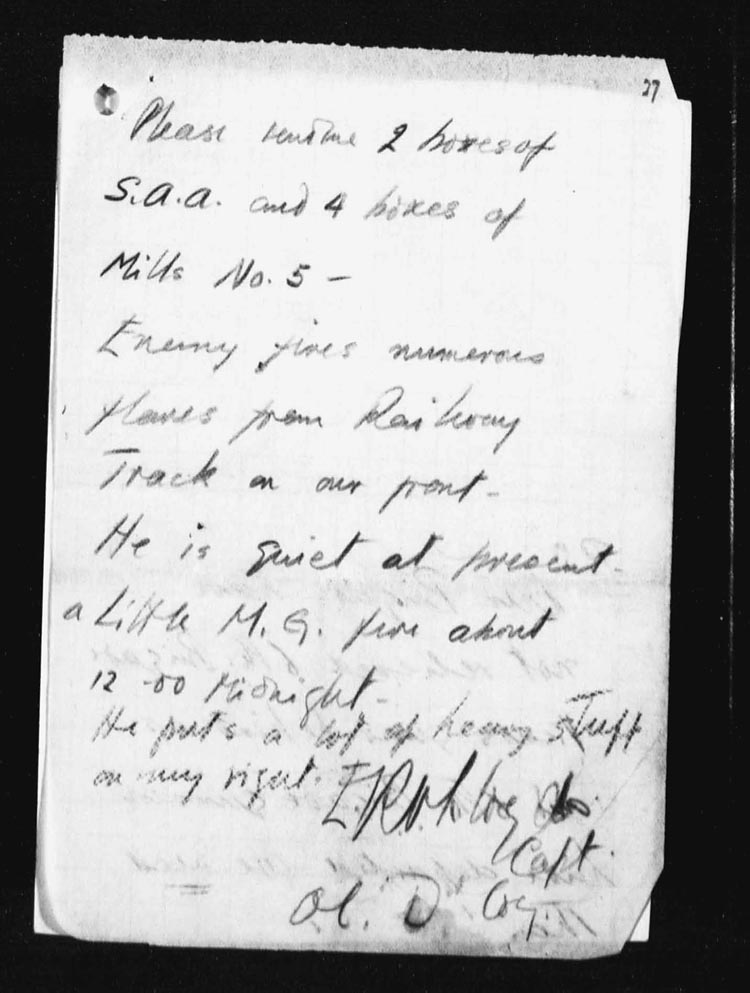 27
Please send me 2 boxes of
S.A.A. and 4 boxes of
Mills No. 5 -
Enemy fires numerous
flares from Railway
Track on our front -
He is quiet at present -
a Little M.G. fire about
12-00 Midnight -
He puts a lot of heavy stuff
on my right.
Capt.
OC. D Coy